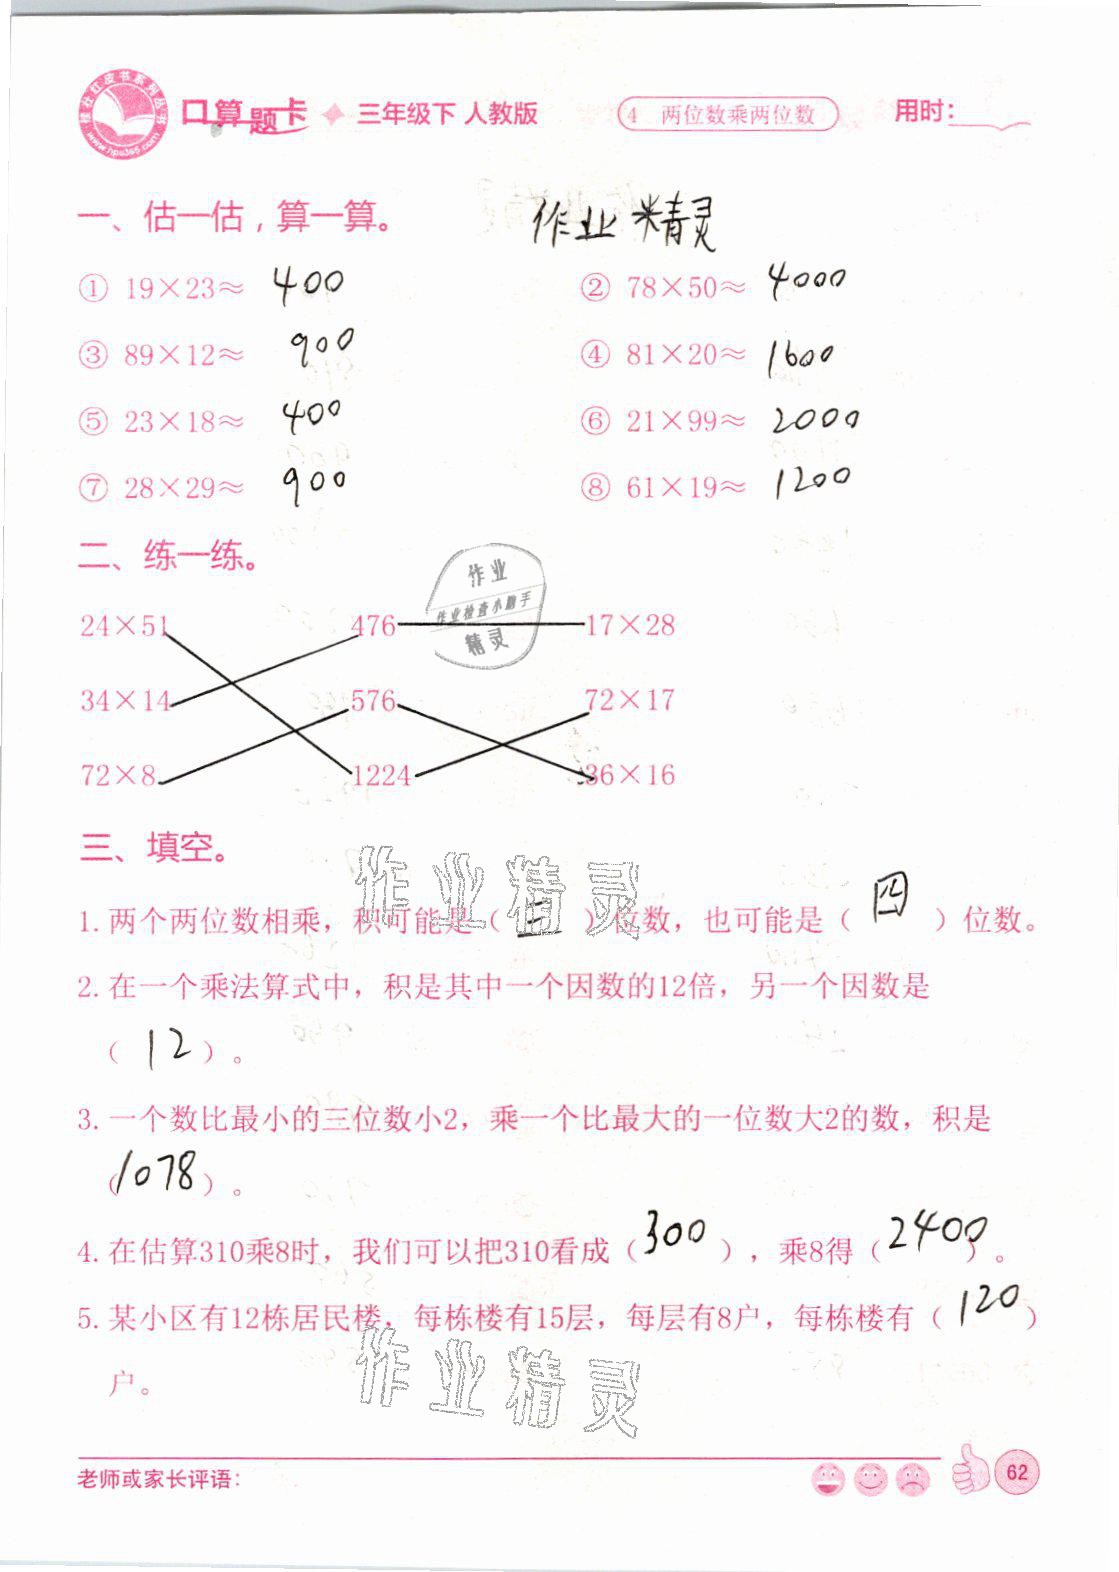 口算题卡 三年级下 人教版 4 两位数乘两位数 用时：
一、估一估，算一算。 作业精灵
① 19×23≈ 400 ② 78×50≈ 4000
③ 89×12≈ 900 ④ 81×20≈ 1600
⑤ 23×18≈ 400 ⑥ 21×99≈ 2000
⑦ 28×29≈ 900 ⑧ 61×19≈ 1200
二、练一练。
作业
作业检查小助手
精灵
24×51 476 17×28
34×14 576 72×17
72×8 1224 36×16
三、填空。
作业精灵
1. 两个两位数相乘，积可能是（ 三 ）位数，也可能是（ 四 ）位数。
2. 在一个乘法算式中，积是其中一个因数的12倍，另一个因数是
（ 12 ）。
3. 一个数比最小的三位数小2，乘一个比最大的一位数大2的数，积是
（1078）。
4. 在估算310乘8时，我们可以把310看成（ 300 ），乘8得（ 2400 ）。
5. 某小区有12栋居民楼，每栋楼有15层，每层有8户，每栋楼有（ 120 ）
户。
作业精灵
老师或家长评语：
62